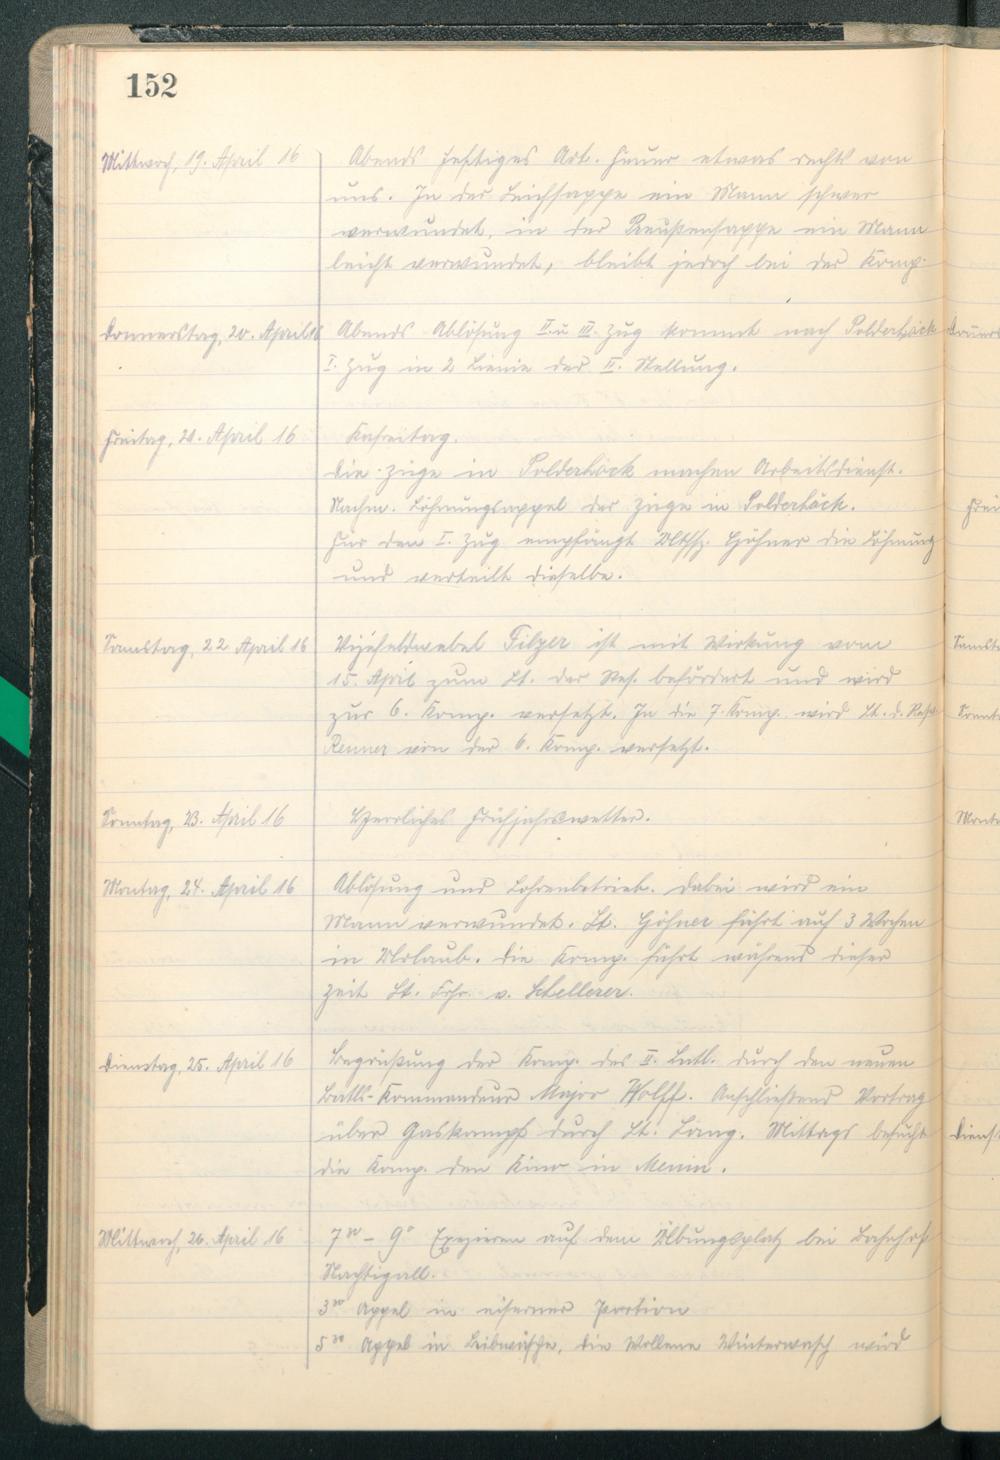 152
Mittwoch, 19. April 16
Abends heftiges Art. Feuer etwas rechts von
uns. In der Teichsappe ein Mann schwer
verwundet, in der Preußensappe ein Mann
leicht verwundet, bleibt jedoch bei der Komp.
Donnerstag, 20. April 16
Abends Ablösung II. u III. Zug kommt nach Polderhöck
I. Zug in 2 Linie der II. Stellung.
Freitag, 21. April 16
Kafreitag.
Die Züge in Polderhöck machen Arbeitsdienst.
Nachm. Löhnungsappel der Züge in Polderhöck.
Für den I. Zug empfängt Göhner die Löhnung
und verteilt dieselbe.
Samstag, 22 April 16
Vizefeldwebel Filzer ist mit Wirkung vom
15. April zum Lt. der Res. befördert und wird
zur 6. Komp. versetzt. In die 7. Komp. wird Lt. d. Res.
Renner von der 6. Komp. versetzt.
Sonntag, 23. April 16
Herrliches Frühjahrswetter.
Montag, 24. April 16
Ablösung und Lohrenbetrieb. Dabei wird ein
Mann verwundet. Lt. Göhner fährt auf 3 Wochen
in Urlaub. Die Komp. führt während dieser
Zeit Lt. Frhr. v. Schellerer.
Dienstag, 25. April 16
Begrüßung der Komp. des II. Batl. durch den neuen
Batls-Kommandeur Major Wolff. Anschließend Vortrag
über Gaskampf durch Lt. Lang. Mittags besucht
die Komp. den Kino in Menin.
Mittwoch, 26. April 16
7³⁰ - 9⁰ Exezieren auf dem Übungsplatz bei Bahnhof
Nachtigall.
3⁰⁰ Appel in eiserner Portion
5³⁰ Appel in Leibwäsche, die Wollene Winterwasch wird